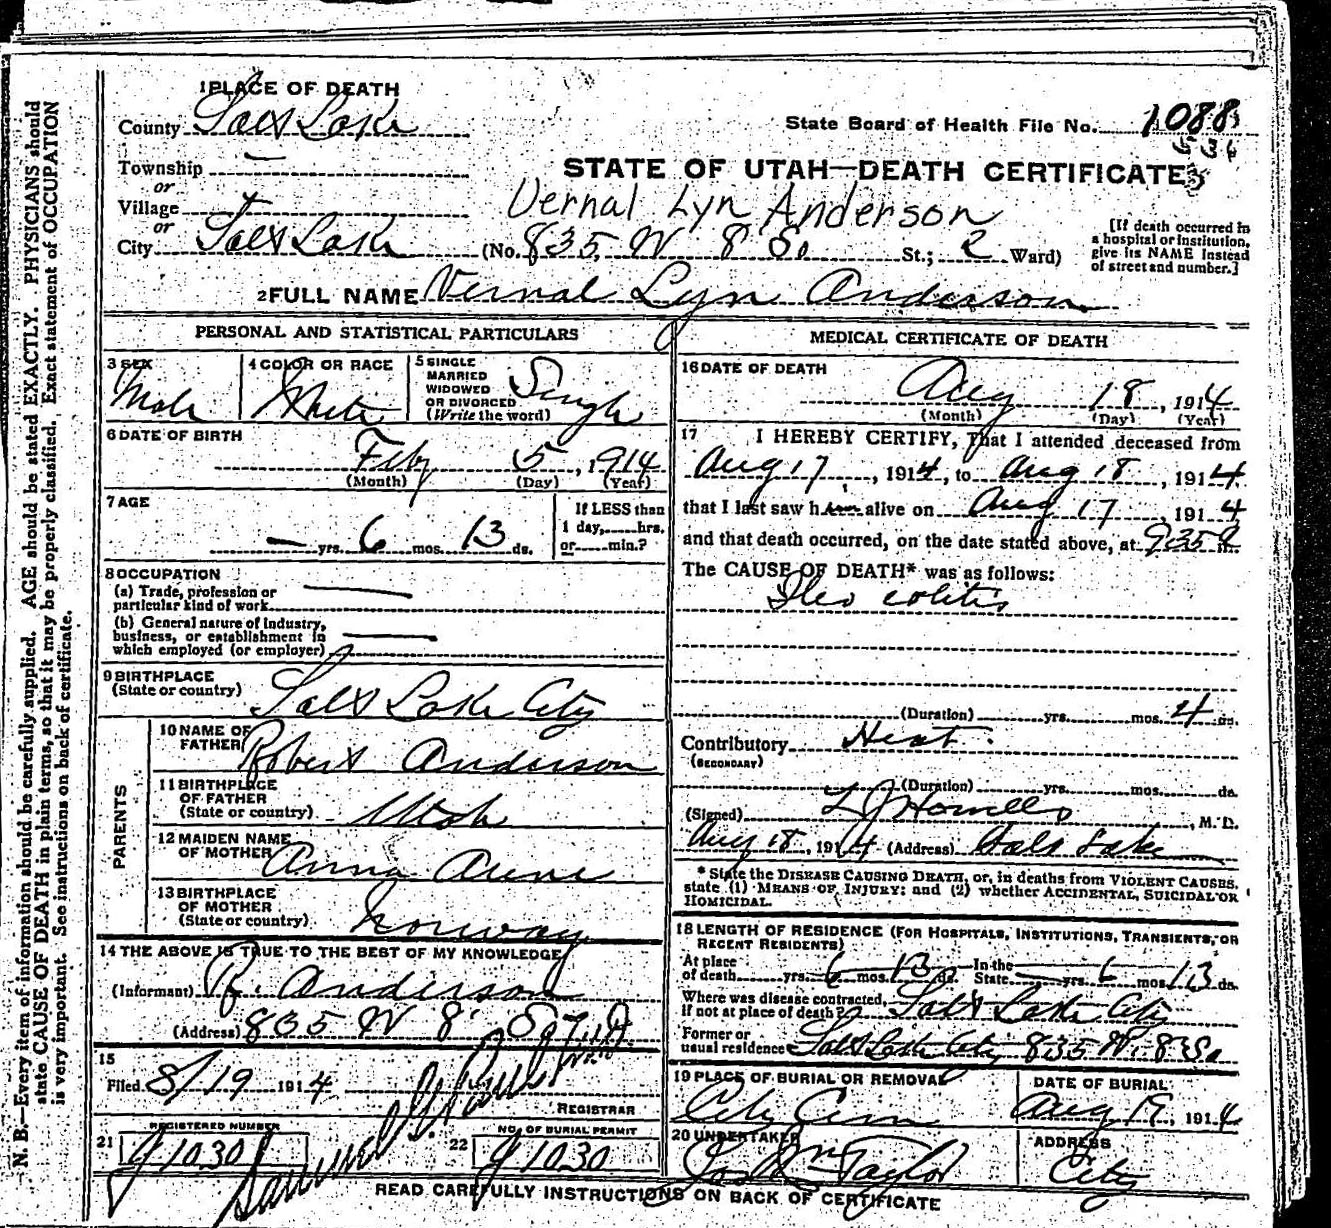 1 PLACE OF DEATH
County Salt Lake
State Board of Health File No. 1088
Township —
or
Village
or
City Salt Lake
STATE OF UTAH—DEATH CERTIFICATE
Vernal Lyn Anderson
(No. 835 W 8 So. St.; 2 Ward)
[If death occurred in
a hospital or institution,
give its NAME instead
of street and number.]
2 FULL NAME Vernal Lyn Anderson
PERSONAL AND STATISTICAL PARTICULARS
3 SEX
Male
4 COLOR OR RACE
White
5 SINGLE
MARRIED
WIDOWED
OR DIVORCED
(Write the word)
Single
6 DATE OF BIRTH
Feby 5, 1914
(Month) (Day) (Year)
7 AGE
— yrs. 6 mos. 13 ds.
If LESS than
1 day, hrs.
or min.?
8 OCCUPATION
(a) Trade, profession or
particular kind of work —
(b) General nature of industry,
business, or establishment in
which employed (or employer) —
9 BIRTHPLACE
(State or country) Salt Lake City
PARENTS
10 NAME OF
FATHER Robert Anderson
11 BIRTHPLACE
OF FATHER
(State or country) Utah
12 MAIDEN NAME
OF MOTHER Anna
13 BIRTHPLACE
OF MOTHER
(State or country) Norway
14 THE ABOVE IS TRUE TO THE BEST OF MY KNOWLEDGE
(Informant) R. Anderson
(Address) 835 W 8 So
15
Filed 8/19 1914
REGISTRAR
REGISTERED NUMBER
21 J1030
NO. OF BURIAL PERMIT
22 J1030
MEDICAL CERTIFICATE OF DEATH
16 DATE OF DEATH
Aug 18, 1914
(Month) (Day) (Year)
17 I HEREBY CERTIFY, That I attended deceased from
Aug 17, 1914, to Aug 18, 1914
that I last saw him alive on Aug 17 1914
and that death occurred, on the date stated above, at 935 m.
The CAUSE OF DEATH* was as follows:
Ileo colitis
(Duration) yrs. mos. 4 ds.
Contributory Heat.
(SECONDARY)
(Duration) yrs. mos. ds.
(Signed) L J Howells, M. D.
Aug 18, 1914 (Address) Salt Lake
* State the DISEASE CAUSING DEATH, or, in deaths from VIOLENT CAUSES,
state (1) MEANS OF INJURY; and (2) whether ACCIDENTAL, SUICIDAL OR
HOMICIDAL.
18 LENGTH OF RESIDENCE (FOR HOSPITALS, INSTITUTIONS, TRANSIENTS, OR
RECENT RESIDENTS)
At place
of death yrs. 6 mos. 13 ds. In the
State yrs. 6 mos. 13 ds.
Where was disease contracted,
if not at place of death? Salt Lake City
Former or
usual residence Salt Lake City 835 W. 8 So
19 PLACE OF BURIAL OR REMOVAL
City Cem
DATE OF BURIAL
Aug 19, 1914
20 UNDERTAKER
Jos Wm Taylor
ADDRESS
City
READ CAREFULLY INSTRUCTIONS ON BACK OF CERTIFICATE
N. B.—Every item of information should be carefully supplied. AGE should be stated EXACTLY. PHYSICIANS should
state CAUSE OF DEATH in plain terms, so that it may be properly classified. Exact statement of OCCUPATION
is very important. See instructions on back of certificate.